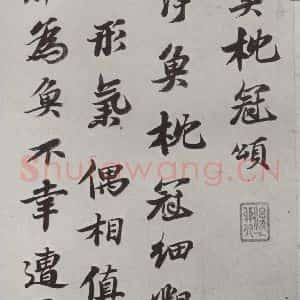 魚枕冠頌
淨魚枕冠細觀
形氣偶相值
為魚不幸遭
Shufawang.CN